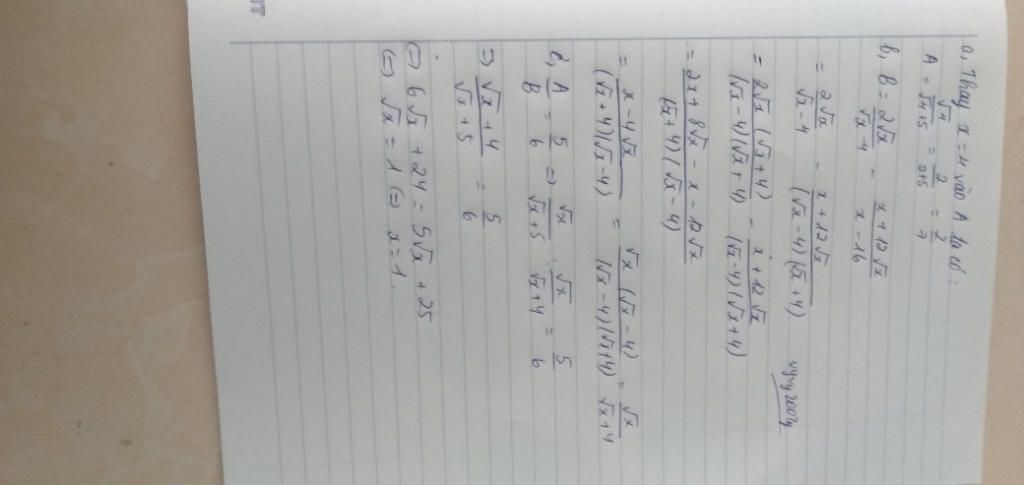 a, Thay x = 4 vào A ta có
A = √4/(√4+5) = 2/(2+5) = 2/7
b, B = 2√x/(√x-4) - (x+12√x)/(x-16)
= 2√x/(√x-4) - (x+12√x)/((√x-4)(√x+4))
= 2√x(√x+4)/((√x-4)(√x+4)) - (x+12√x)/((√x-4)(√x+4))
= (2x+8√x-x-12√x)/((√x+4)(√x-4))
= (x-4√x)/((√x+4)(√x-4)) = √x(√x-4)/((√x-4)(√x+4)) = √x/(√x+4)
c, A/B = 5/6 => √x/(√x+5) : √x/(√x+4) = 5/6
=> (√x+4)/(√x+5) = 5/6
(=) 6√x + 24 = 5√x + 25
(=) √x = 1 (=) x = 1.